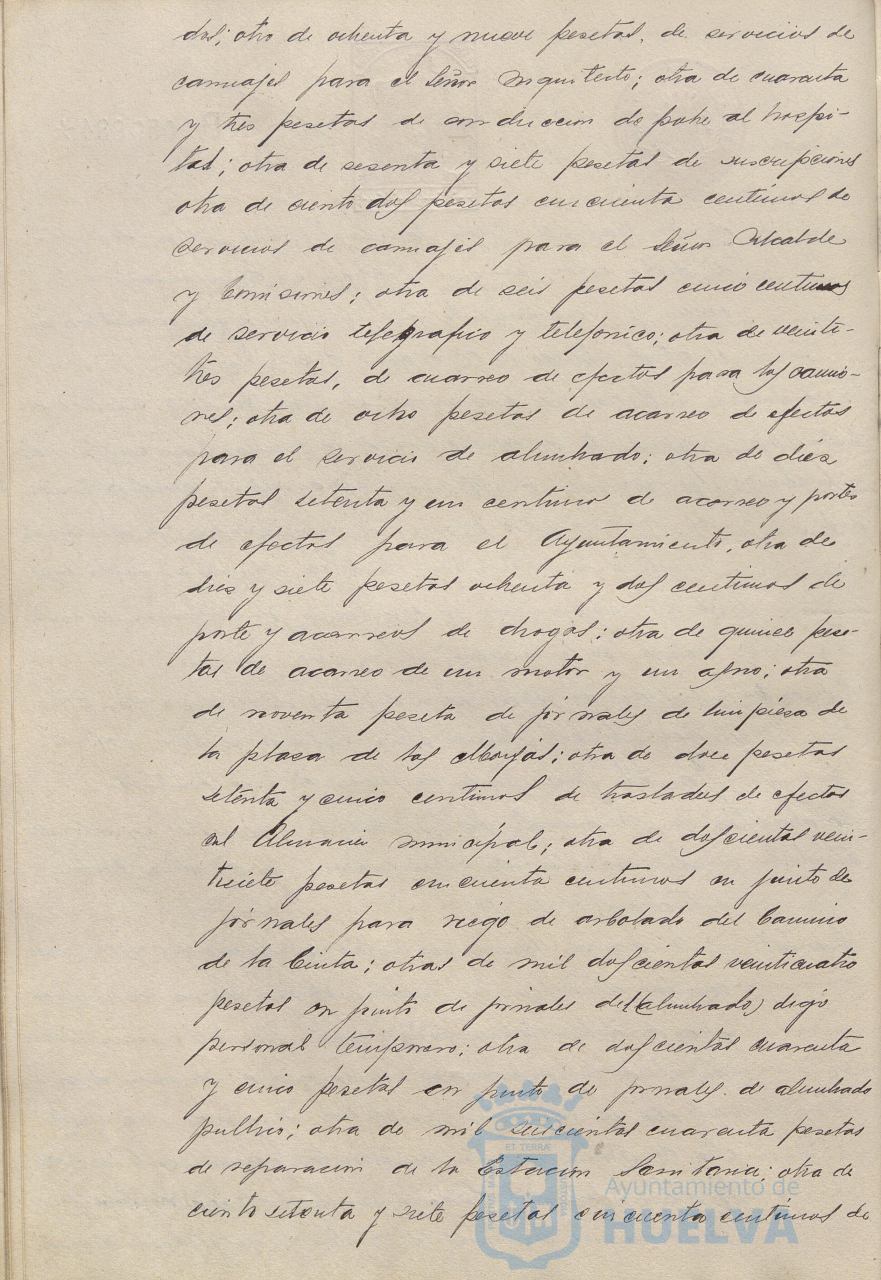 dos; otro de ochenta y nueve pesetas, de servicios de
carruajes para el Señor Arquitecto; otra de cuarenta
y tres pesetas de conduccion de pobre al hospi-
tal; otra de sesenta y siete pesetas de suscripciones
otra de ciento dos pesetas cincuenta centimos de
servicios de carruajes para el Señor Alcalde
y Comisiones; otra de seis pesetas cinco centimos
de servicio telegrafico y telefonico; otra de veinti-
tres pesetas, de acarreo de efectos para los camio-
nes; otra de ocho pesetas de acarreo de efectos
para el servicio de alumbrado; otra de diez
pesetas setenta y un centimos de acarreo y portes
de efectos para el Ayuntamiento, otra de
diez y siete pesetas ochenta y dos centimos de
porte y acarreos de drogas; otra de quince pese-
tas de acarreo de un motor y un; otra
de noventa peseta de jornales de limpieza de
la plaza de las Monjas; otra de doce pesetas
setenta y cinco centimos de traslados de efectos
al Almacen municipal; otra de doscientas vein-
tisiete pesetas cincuenta centimos en junto de
jornales para riego de arbolado del Camino
de la Cinta; otras de mil doscientas veinticuatro
pesetas en junto de jornales de (alumbrado) digo
personal temporero; otra de doscientas cuarenta
y cinco pesetas en junto de jornales de alumbrado
publico; otra de mil cuarenta pesetas
de reparacion de la Estacion Sanitaria; otra de
ciento setenta y siete pesetas cincuenta centimos de
ET TERRÆ
Ayuntamiento de
HUELVA